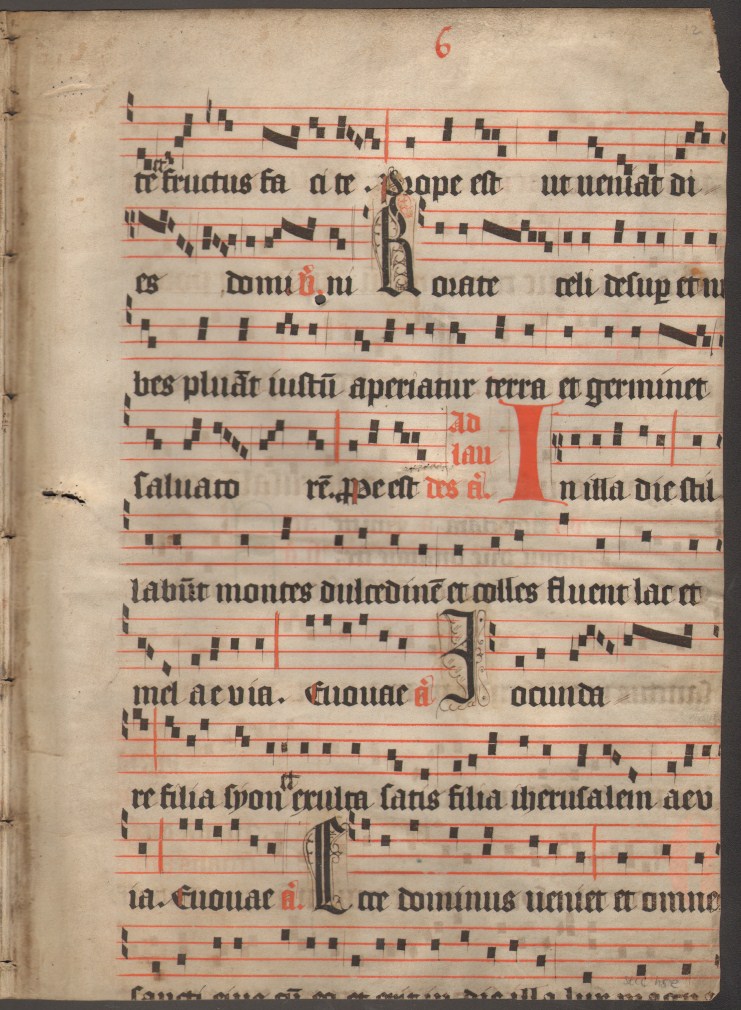 6
12
te et fructus fa ci te . Prope est ut ueniat di
es domi v̾. ni Rorate celi desuꝑ et nu
bes pluāt iustū aperiatur terra et germinet
saluato rē. ꝓpe est
ad
lau
des a̾.
In illa die stil
labūt montes dulcedinē et colles fluent lac et
mel aevia. Euouae a̾ Jocunda
re filia syon et exulta satis filia iherusalem aev
ia. Euouae a̾. Ecce dominus ueniet et omnes
sancti eius cū eo et erit in die illa lux magna